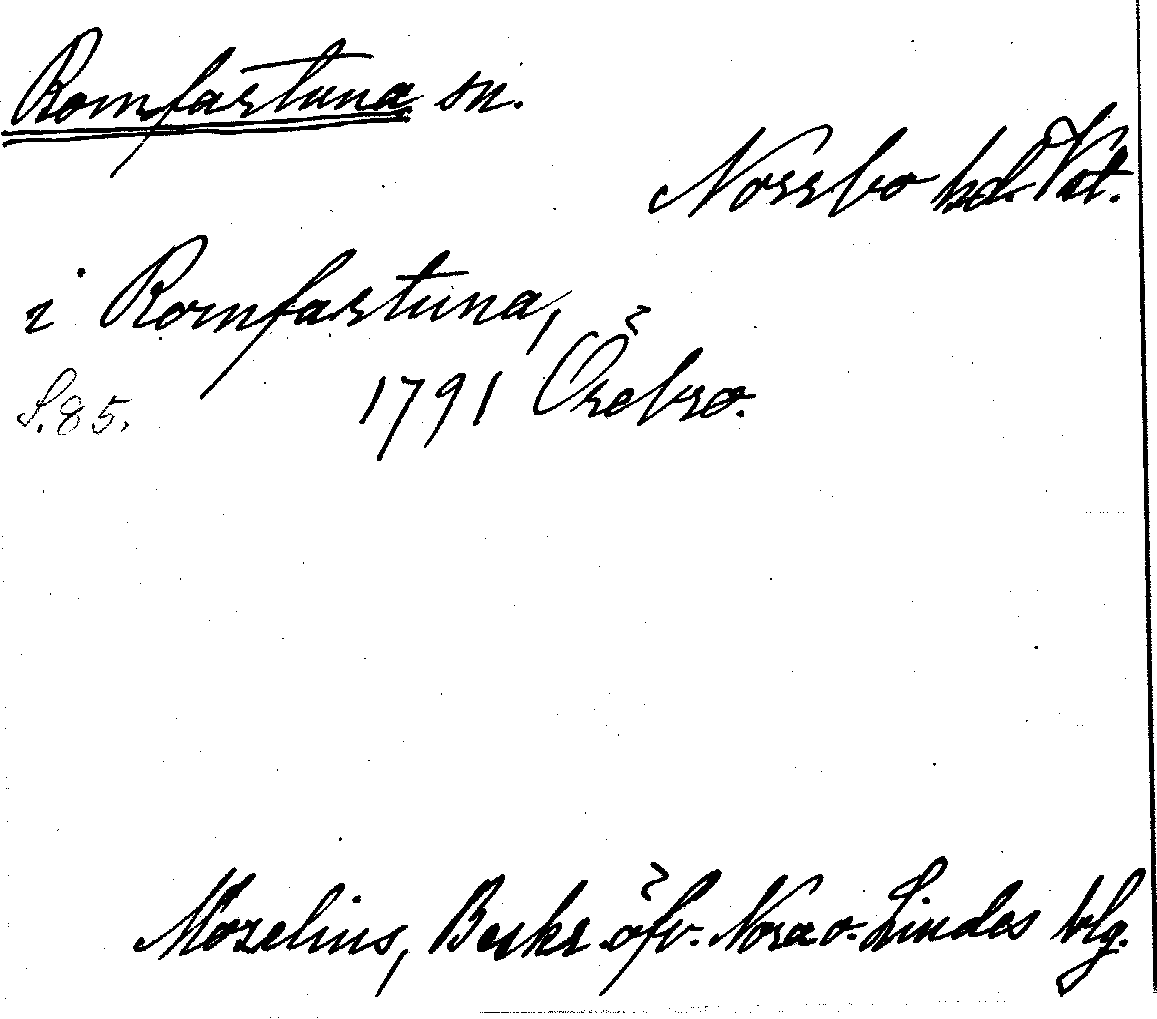 Romfartuna sn.
Norrbo hd. Vst.
i Romfartuna,
S. 85. 1791 Örebro.
Morelius, Beskr öfv. Nora o. Lindes blg.